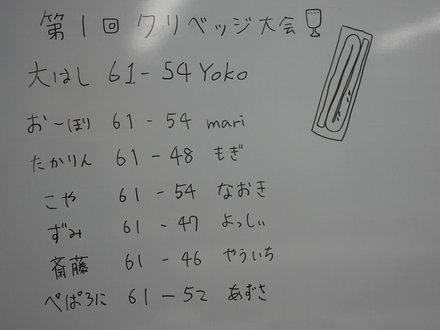 第1回クリベッジ大会
大はし 61-54 Yoko
お〜ぼり 61-54 mari
たかりん 61-48 もぎ
こや 61-54 なおき
ずみ 61-47 よっしぃ
斎藤 61-46 やういち
ぺぱろに 61-52 あずさ